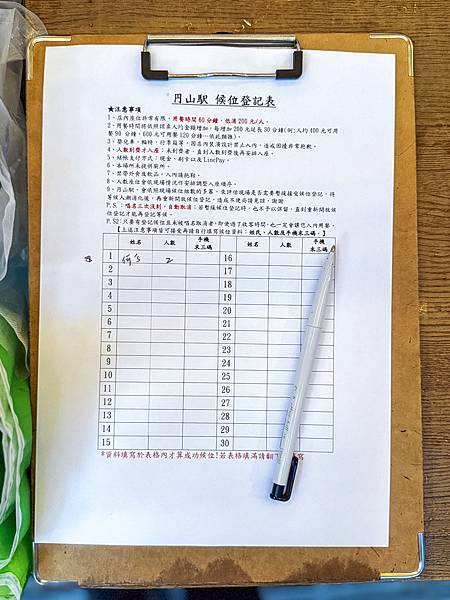 円山駅 候位登記表
★注意事項
1、店內座位非常有限，用餐時間60分鐘，低消200元/人。
2、用餐時間將依照該桌人均金額增加，每增加200元延長30分鐘(例:人均400元可用
餐90分鐘，600元可用餐120分鐘…依此類推)。
3、嬰兒車、輪椅、行李箱等，因店內裝潢設計禁止入內，造成困擾非常抱歉。
4、人數到齊才入座；未到齊者，直到人數到齊後再安排入座。
5、結帳支付方式：現金、刷卡以及LinePay。
6、本場所未提供廁所。
7、禁帶外食飲品，入內請脫鞋。
8、人數座位會依現場情況作安排調整入座順序。
9、円山駅，會依照現場候位組數的多寡，來評估現場是否需要暫緩接受候位登記，待
等候人潮消化後，再重新開放候位登記，造成不便尚請見諒，謝謝
P.S.：唱名三次沒到，自動取消；若暫緩候位登記時，也不予以保留，直到重新開放候
位登記才能再登記等候。
P.S2:只要有登記候位且未被唱名取消者,即使過了收客時間,也一定會讓您入內用餐。
【上述注意事項皆可接受再請自行填寫候位資料：姓氏、人數及手機末三碼。】
姓名 人數 手機末三碼 姓名 人數 手機末三碼
1 2 16
2 17
3 18
4 19
5 20
6 21
7 22
8 23
9 24
10 25
11 26
12 27
13 28
14 29
15 30
*資料填寫於表格內才算成功候位!若表格填滿請翻
寫